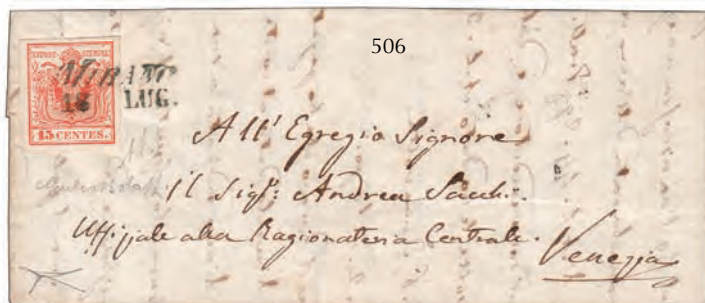 506
MIRANO
18 LUG.
15 CENTES.
All' Egregio Signore
il Sigr: Andrea Sacchi.
Uffizjale alla Ragionateria Centrale.
Venezia